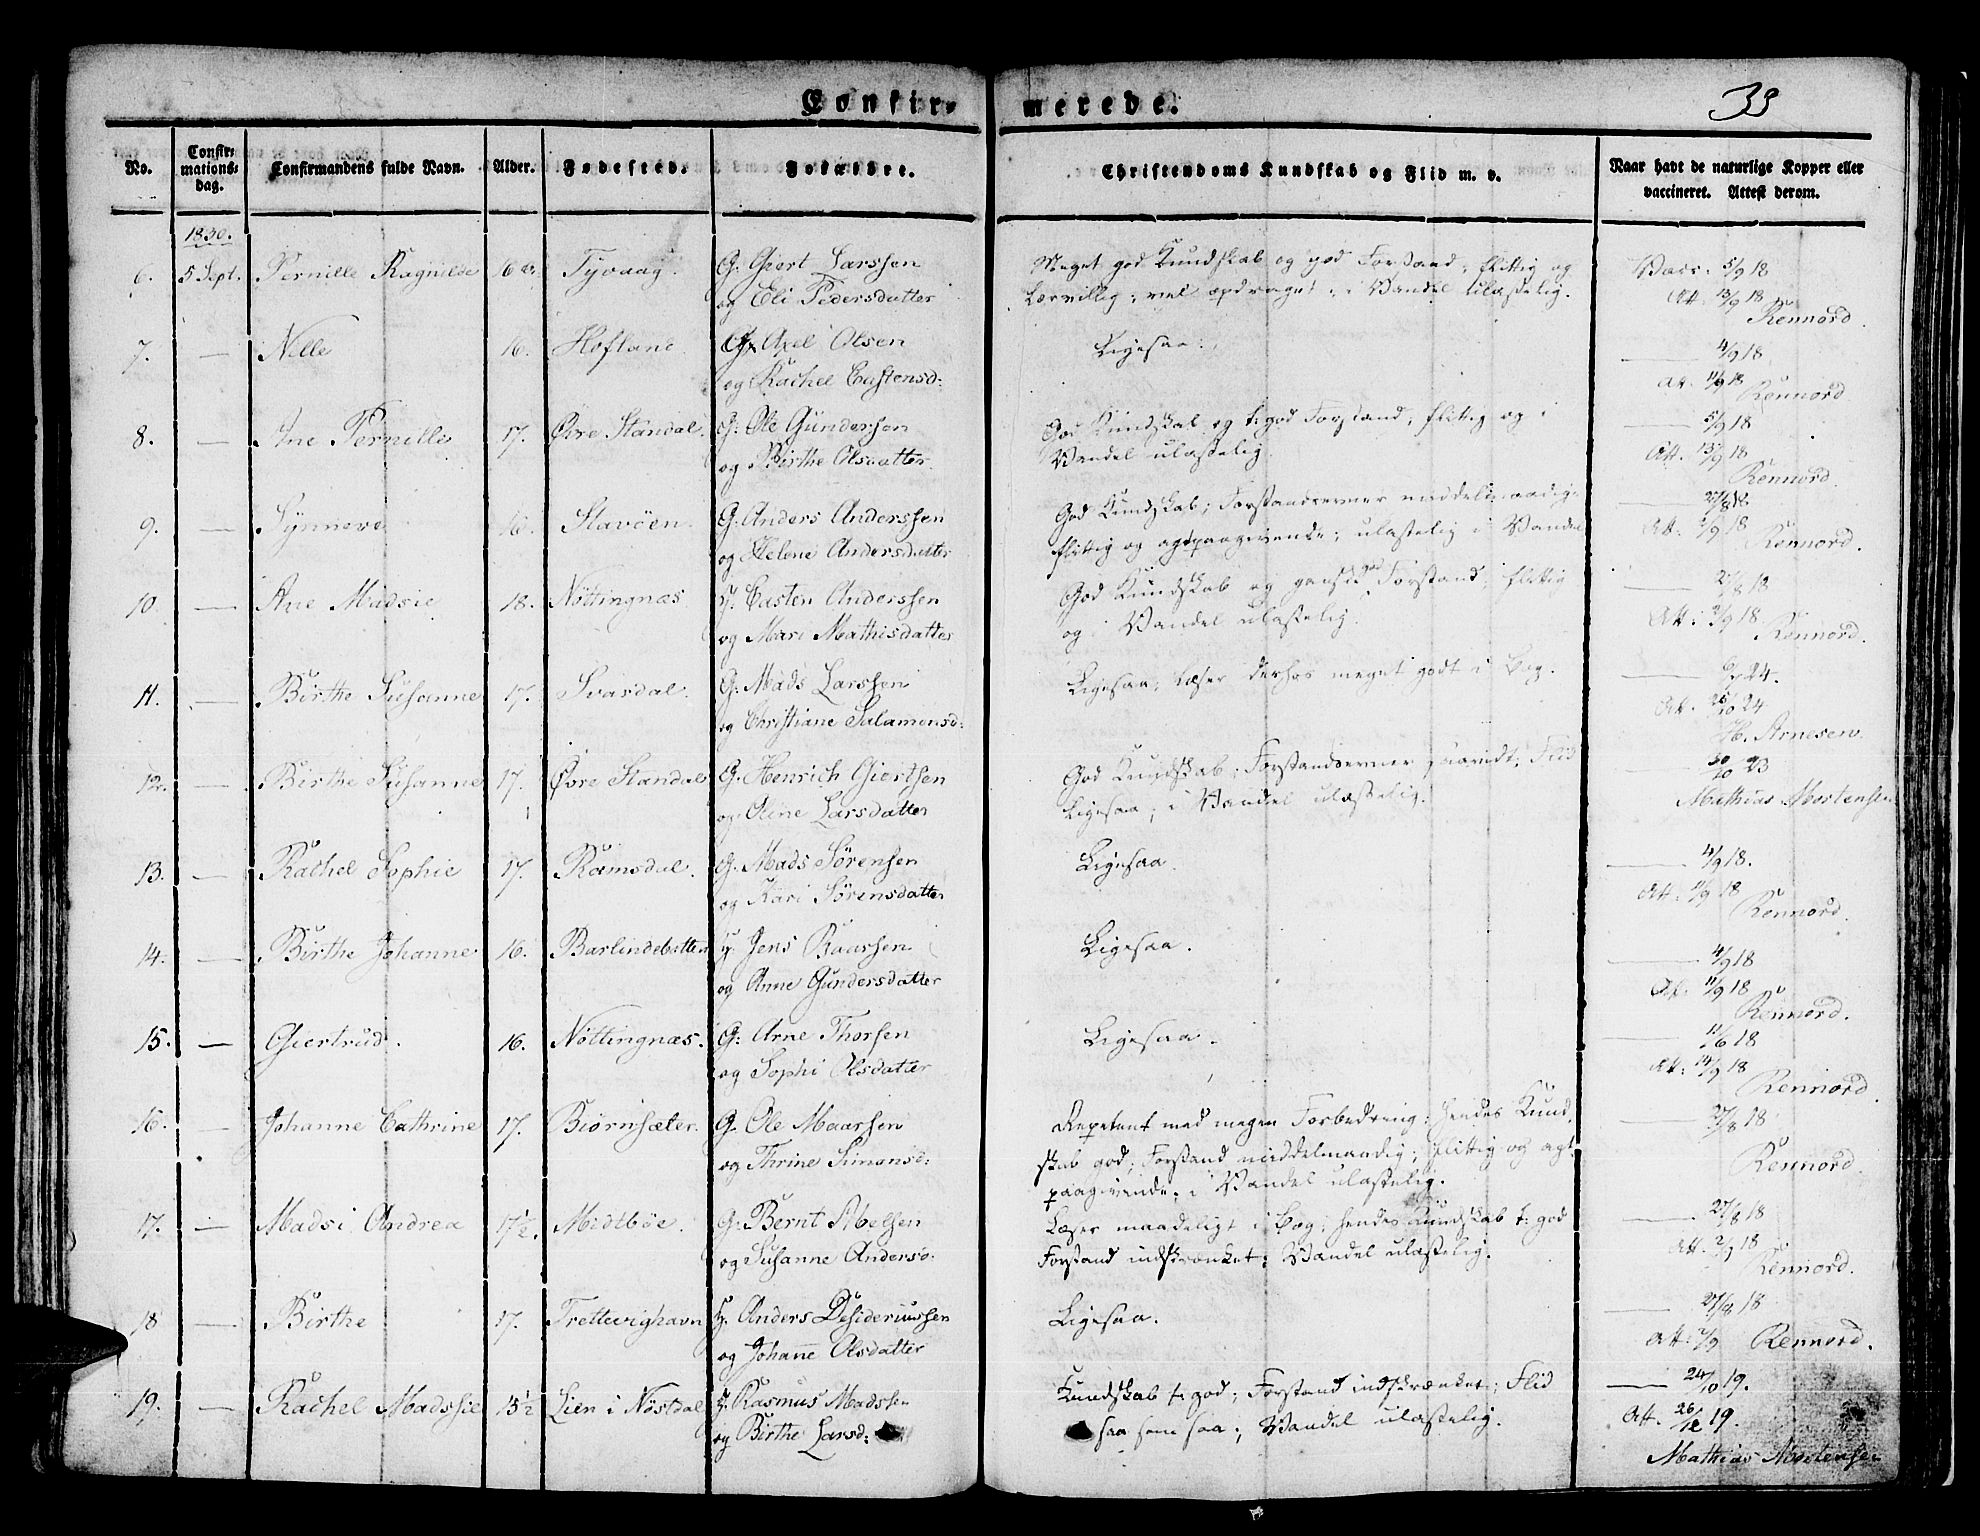 Confir- merede.
33
No.
Confir- mations- dag.
Confirmandens fulde Navn.
Alder.
Fødested.
Forældre.
Christendoms Kundskab og Flid m. v.
Naar havt de naturlige Kopper eller vaccineret. Attest derom.
1830.
6. 5 Sept. Pernille Ragnilde 16 Tyvaag. G. Giert Larssen Meget god Kundskab og god Forstand; flittig og Vacc. 5/9 18
og Eli Pedersdatter Lærvillig; vel opdraget; i Vandel ulastelig. Att. 13/9 18
Rennord.
7. — Nille 16. Hofland G. Axel Olsen Ligesaa. — 4/9 18
og Rachel Castensd: At. 11/9 18
Rennord.
8. — Ane Pernille 17. Øvre Standal. G. Ole Gundersen God Kundskab og t. god Forstand; flittig og i — 5/9 18
og Birthe Olsdatter. Vandel ulastelig. Att. 13/9 18
Rennord.
9. — Synneve 16. Stavöen. G. Anders Anderssen God Kundskab; Forstandsevner middelmaadige — 27/8 18
og Helene Andersdatter flittig og agtpaagivende; ulastelig i Vandel Att. 2/9 18
Rennord.
10. — Ane Madsie 18. Nöttingnæs Y. Casten Anderssen God Kundskab og ganske god Forstand; flittig — 27/8 18
og Mari Mathisdatter og i Vandel ulastelig. Att: 2/9 18
Rennord.
11. — Birthe Susanne 17. Svardal. G. Mads Larssen Ligesaa; Læser derhos meget godt i Bog. — 24.
og Christiane Salamonsd: Att. 24
H. Arnesen
12. — Birthe Susanne 17. Øvre Standal G. Henrich Giertsen God Kundskab; Forstandsevner Flid — 30/10 23
og Oline Larsdatter Ligesaa; i Vandel ulastelig. Mathias Mortensen
13. — Rachel Sophie 17. Ramsdal. G. Mads Sörensen Ligesaa. — 4/9 18.
og Kari Sörensdatter Att. 11/9 18
Rennord.
14. — Birthe Johanne 16. Barlindebotten Y. Jens Baarsen Ligesaa. — 4/9 18
og Anne Gundersdatter At. 11/9 18
Rennord.
15. — Giertrud. 16. Nöttingnæs. G: Arne Thorsen Ligesaa. — 18
og Sophi Olsdatter Att: 14/9 18
Rennord.
16. — Johanne Cathrine 17. Biörnsæter. G. Ole Maarsen Repetent med megen Forbedring; hendes Kund- — 27/8 18
og Thrine Simonsd: skab god; Forstand middelmaadig; flittig og agt-
Rennord.
paagivende; i Vandel ulastelig.
17. — Madsi Andrea 17½. Midtböe. G: Bernt Abelsen Læser maadeligt i Bog; hendes Kundskab t. god — 27/8 18
og Susanne Andersd: Forstand indskrænket; Vandel ulastelig. Att. 2/9 18
Rennord.
18 — Birthe 17. Trettevighavn Y. Anders Desideriussen Ligesaa. — 27/8 18
og Johanne Olsdatter Att: 2/9 Rennord.
19. — Rachel Madssie 15½ Lien i Nöstdal Y. Rasmus Madssen Kundskab t. god; Forstand indskrænket; Flid — 24/10 19.
og Birthe Larsd: saa som saa; Vandel ulastelig. Att. 26/12 19.
Mathias Mortensen